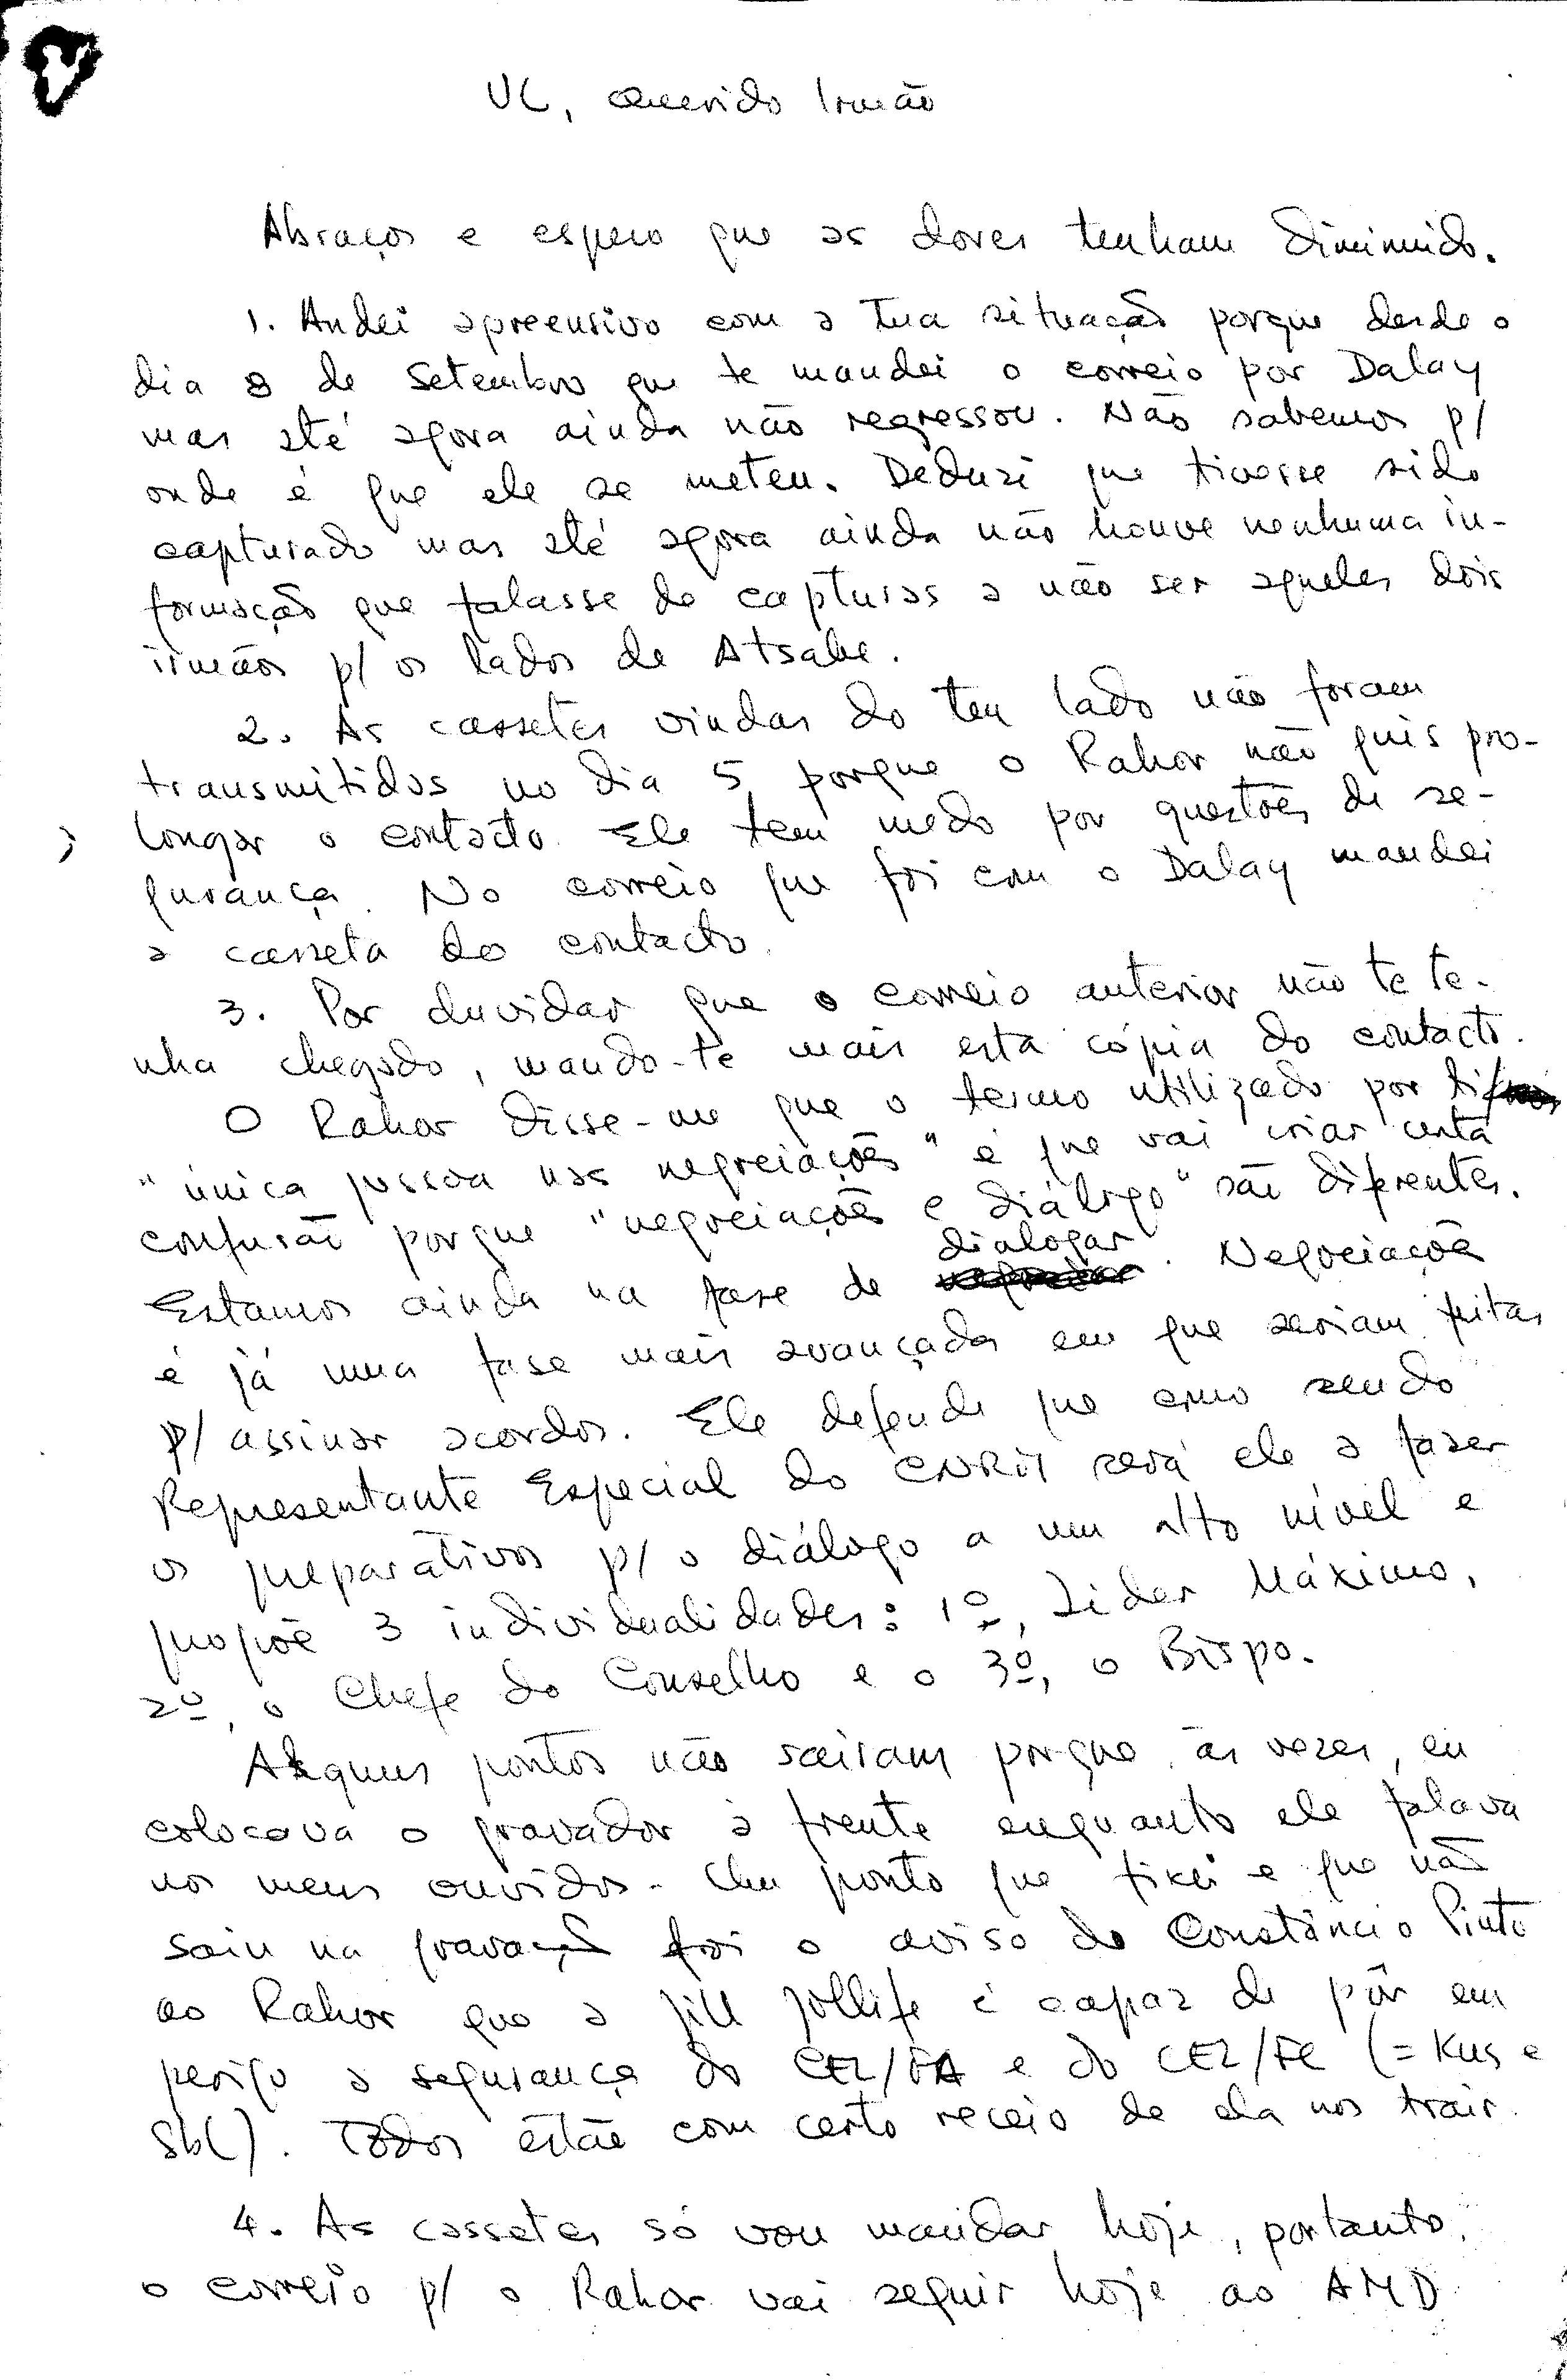 UC, Querido Irmão
Abraços e espero que as dores tenham diminuido.
1. Andei apreensivo com a tua situação porque desde o
dia 8 de Setembro que te mandei o correio por Dalay
mas até agora ainda não regressou. Não sabemos p/
onde é que ele se meteu. Deduzi que tivesse sido
capturado mas até agora ainda não houve nenhuma in-
formação que falasse de capturas a não ser aqueles dois
irmãos p/ os lados de Atsabe.
2. As cassetes vindas do teu lado não foram
transmitidas no dia 5 porque o Rahor não quis pro-
longar o contacto. Ele tem medo por questões de se-
gurança. No correio que foi com o Dalay mandei
a casseta do contacto.
3. Por duvidar que o correio anterior não te te-
nha chegado, mando-te mais esta cópia do contacto.
O Rahor disse-me que o termo utilizado por ti
"única pessoa nas negociações" é que vai criar certa
confusão porque "negociações e diálogo" são diferentes.
Estamos ainda na fase de dialogar. Negociações
é já uma fase mais avançada em que seriam feitas
p/ assinar acordos. Ele defende que como sendo
Representante Especial do CNRM será ele a fazer
os preparativos p/ o diálogo a um alto nível e
propõe 3 individualidades: 1º, Lider Máximo,
2º, o Chefe do Conselho e o 3º, o Bispo.
Alguns pontos não sairam porque, às vezes, eu
colocava o gravador à frente enquanto ele falava
nos meus ouvidos. Um ponto que fixei e que não
saiu na gravação foi o aviso do Constâncio Pinto
ao Rahor que a Jill Jollife é capaz de pôr em
perigo a segurança do CER/FA e do CER/FC (= Kus e
Sb(). Todos estão com certo receio de ela nos trair.
4. As cassetes só vou mandar hoje, portanto,
o correio p/ o Rahor vai seguir hoje ao AMD